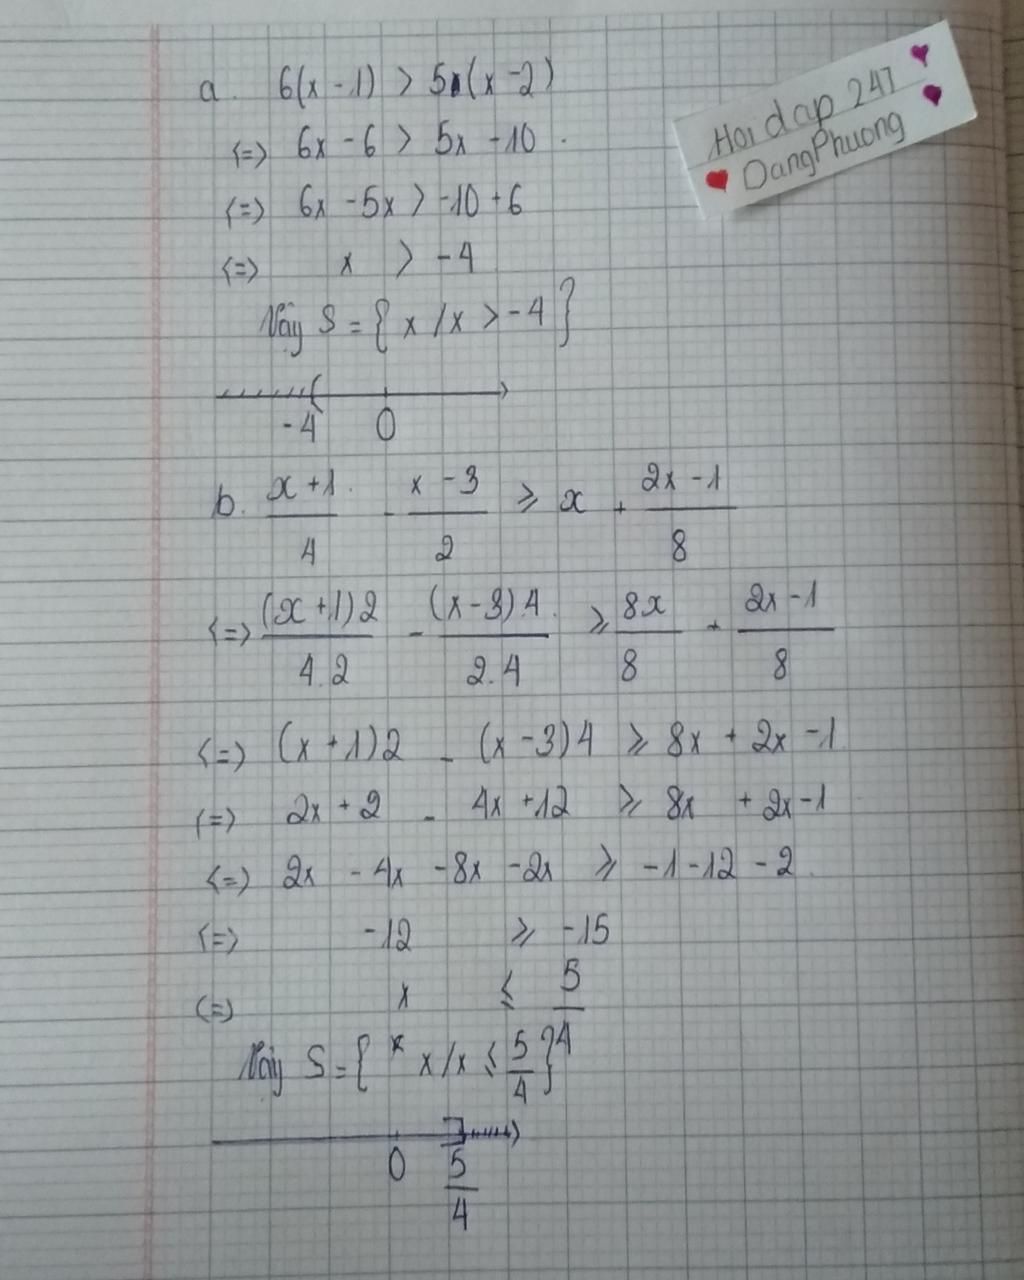 a. 6(x - 1) > 5(x - 2)
<=> 6x - 6 > 5x - 10.
<=> 6x - 5x > -10 + 6
<=> x > -4
Vậy S = { x / x > -4 }
-4 0
b. x + 1 / 4 - x - 3 / 2 ≥ x + 2x - 1 / 8
<=> (x + 1)2 / 4.2 - (x - 3)4 / 2.4 ≥ 8x / 8 + 2x - 1 / 8
<=> (x + 1)2 - (x - 3)4 ≥ 8x + 2x - 1
<=> 2x + 2 - 4x + 12 ≥ 8x + 2x - 1
<=> 2x - 4x - 8x - 2x ≥ -1 - 12 - 2
<=> -12 ≥ -15
<=> x ≤ 5 / 4
Vậy S = { x / x ≤ 5 / 4 }
0 5 / 4
Hoi dap 247
DangPhuong